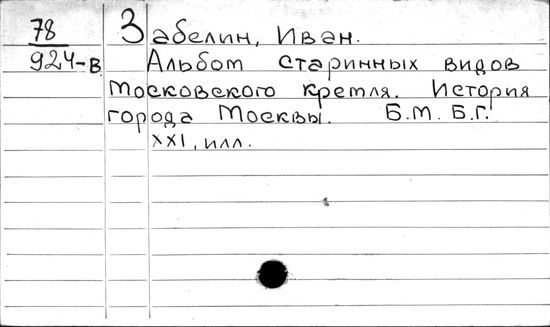 78
924-в
Забелин, Иван.
Альбом старинных видов
Московского кремля. История
города Москвы. Б.М. Б.Г.
XXI, илл.